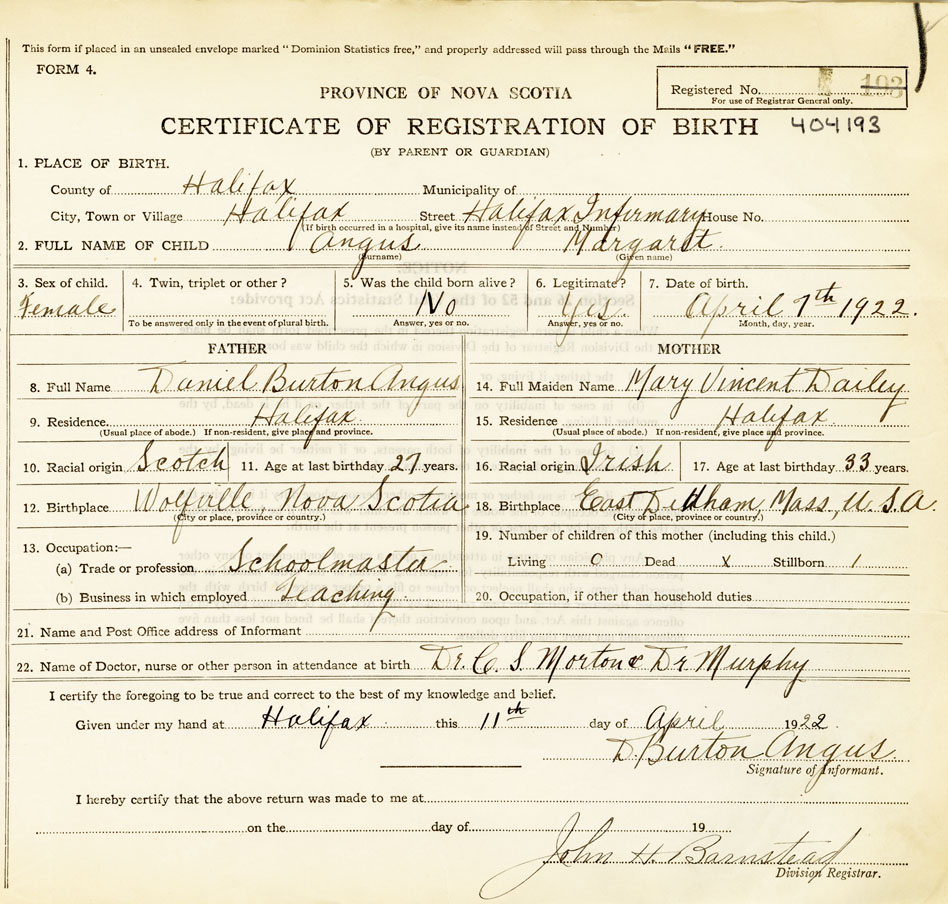 This form if placed in an unsealed envelope marked "Dominion Statistics free," and properly addressed will pass through the Mails "FREE."
FORM 4.
Registered No. 193
For use of Registrar General only.
PROVINCE OF NOVA SCOTIA
CERTIFICATE OF REGISTRATION OF BIRTH 404193
(BY PARENT OR GUARDIAN)
1. PLACE OF BIRTH.
County of Halifax Municipality of
City, Town or Village Halifax Street Halifax Infirmary House No.
(If birth occurred in a hospital, give its name instead of Street and Number)
2. FULL NAME OF CHILD Angus Margaret.
(Surname) (Given name)
3. Sex of child. 4. Twin, triplet or other? 5. Was the child born alive? 6. Legitimate? 7. Date of birth.
Female No Yes. April 7th 1922.
To be answered only in the event of plural birth. Answer, yes or no. Answer, yes or no. Month, day, year.
FATHER MOTHER
8. Full Name Daniel Burton Angus 14. Full Maiden Name Mary Vincent Dailey
9. Residence. Halifax 15. Residence Halifax
(Usual place of abode.) If non-resident, give place and province. (Usual place of abode.) If non-resident, give place and province.
10. Racial origin Scotch 11. Age at last birthday 27 years. 16. Racial origin Irish 17. Age at last birthday 33 years.
12. Birthplace Wolfville, Nova Scotia 18. Birthplace East Dedham, Mass., U.S.A.
(City or place, province or country.) (City or place, province or country.)
13. Occupation:— 19. Number of children of this mother (including this child.)
(a) Trade or profession Schoolmaster Living 0 Dead X Stillborn 1
(b) Business in which employed Teaching 20. Occupation, if other than household duties
21. Name and Post Office address of Informant
22. Name of Doctor, nurse or other person in attendance at birth Dr. C. S. Morton & Dr Murphy
I certify the foregoing to be true and correct to the best of my knowledge and belief.
Given under my hand at Halifax this 11th day of April 1922.
D. Burton Angus.
Signature of Informant.
I hereby certify that the above return was made to me at
on the day of 19
John H. Barnstead
Division Registrar.